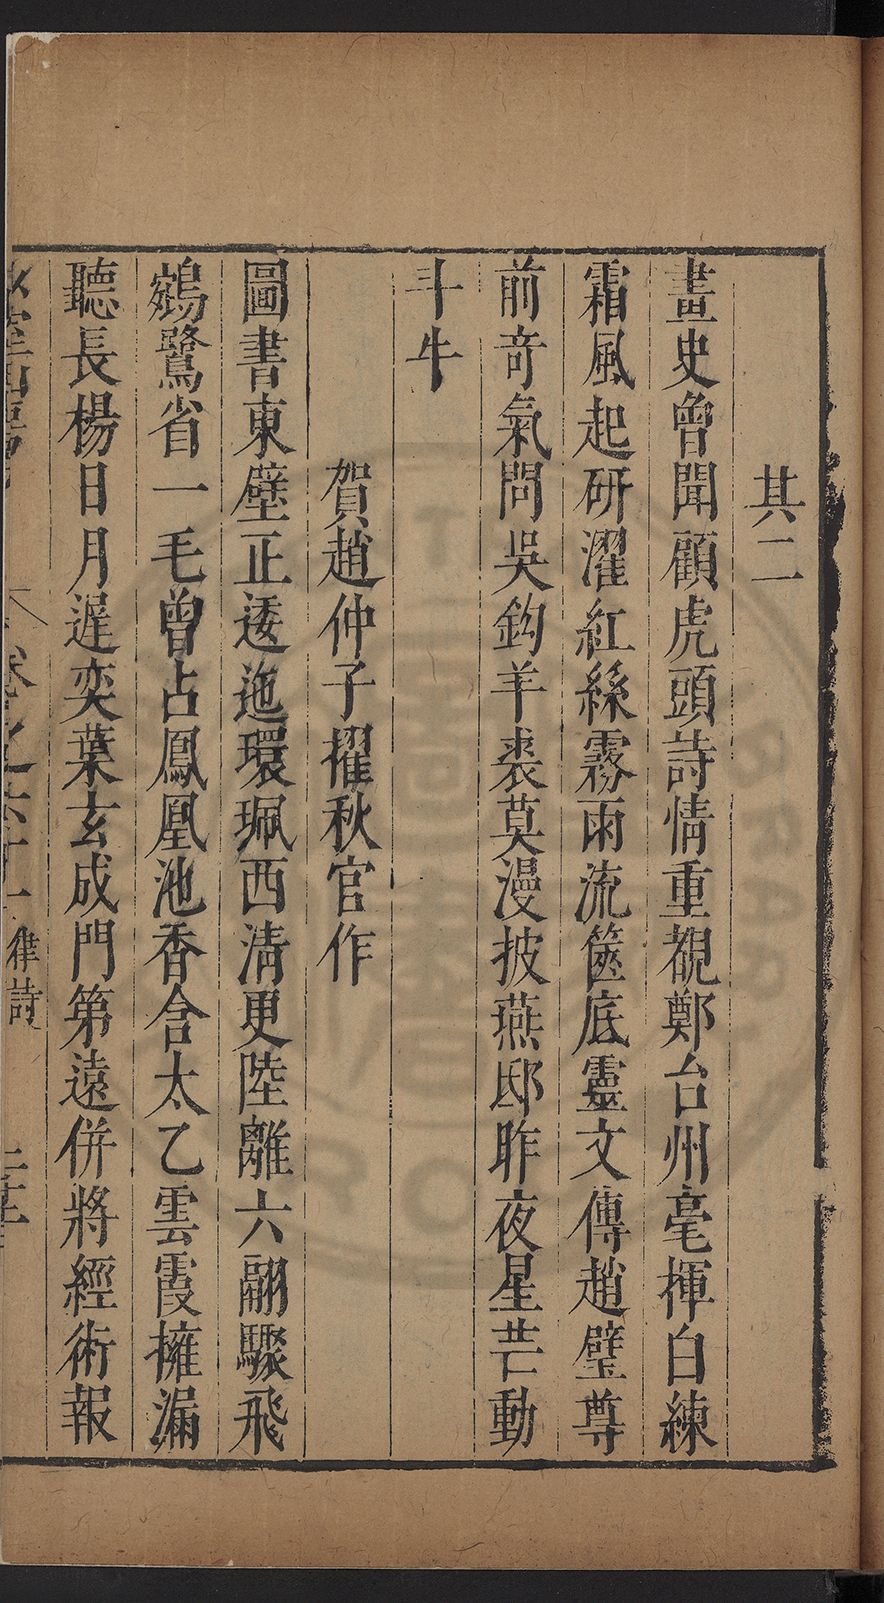 其二
畫史曾聞顧虎頭詩情重覩鄭台州毫揮白練
霜風起研濯紅絲霧雨流篋底靈文傳趙璧尊
前奇氣問吳鈎羊裘莫漫披燕邸昨夜星芒動
斗牛
賀趙仲子擢秋官作
圖書東壁正逶迤環珮西清更陸離六翮驟飛
鵷鷺省一毛曾占鳳凰池香含太乙雲霞擁漏
聽長楊日月遲奕葉玄成門第遠併將經術報
卷之六十一 律詩